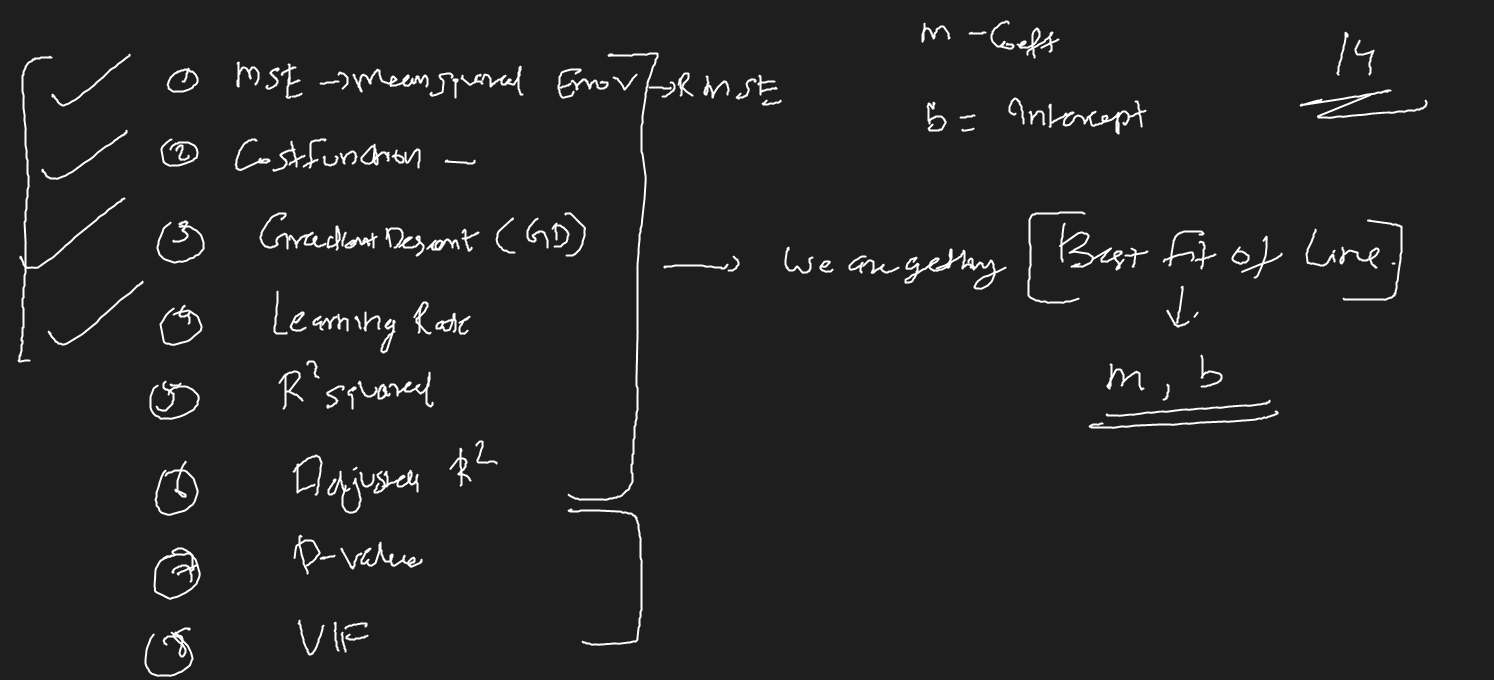 ① MSE → Mean Squared Error → RMSE
② Cost Function —
③ Gradient Descent (GD)
④ Learning Rate
⑤ R² squared
⑥ Adjusted R²
⑦ P-value
⑧ VIF
m - Coeff
b = Intercept
14
→ We are getting [Best fit of Line.]
↓
m, b